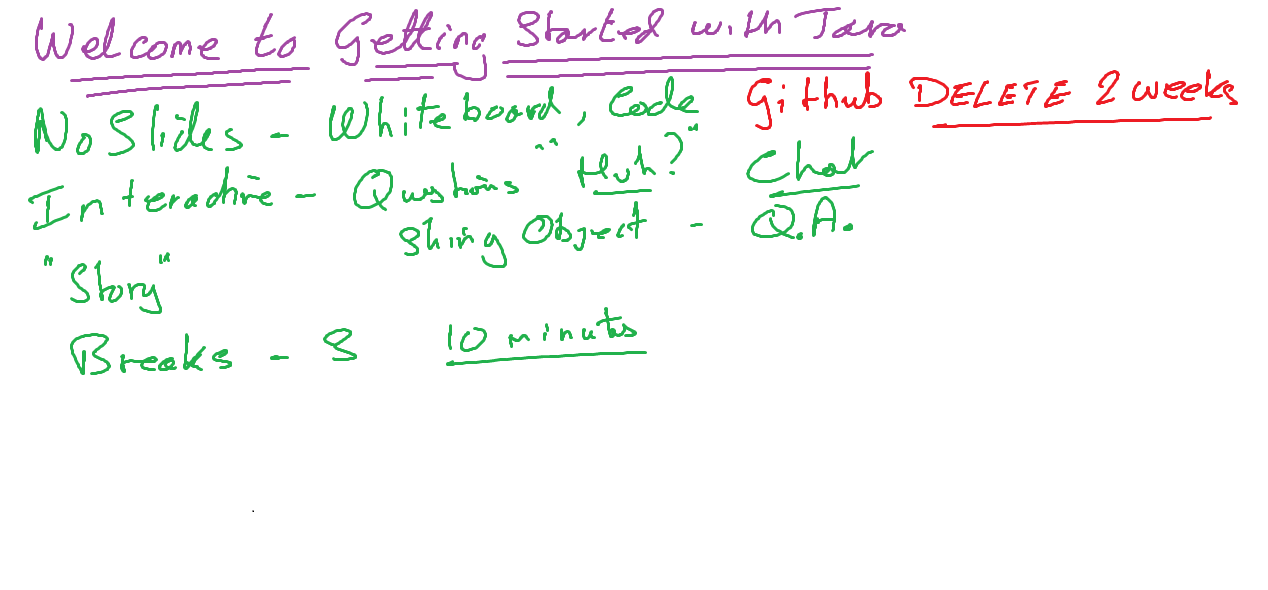 Welcome to Getting Started with Java
No Slides - Whiteboard, Code Github DELETE 2 weeks
Interactive - Questions "Huh?" Chat
String Object - Q.A.
"Story"
Breaks - 3 10 minutes